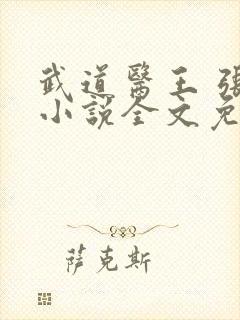 武道醫王 張
小說全文免
萨克斯